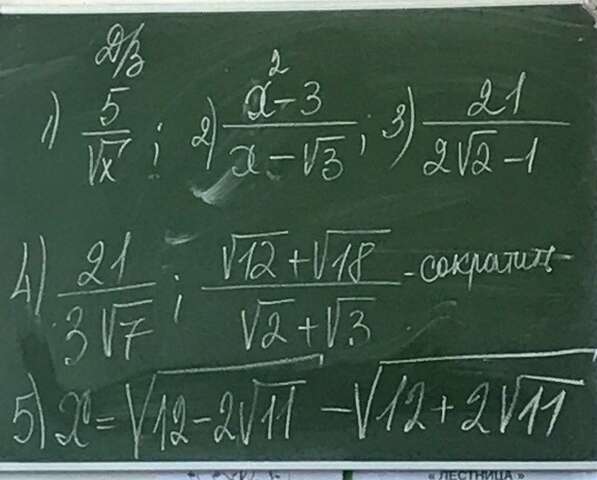 Д/з
1) 5/√x ; 2) (x² - 3)/(x - √3) ; 3) 21/(2√2 - 1)
4) 21/(3√7) ; (√12 + √18)/(√2 + √3) - сократить
5) x = √(12 - 2√11) - √(12 + 2√11)
« ЛЕСТНИЦА »